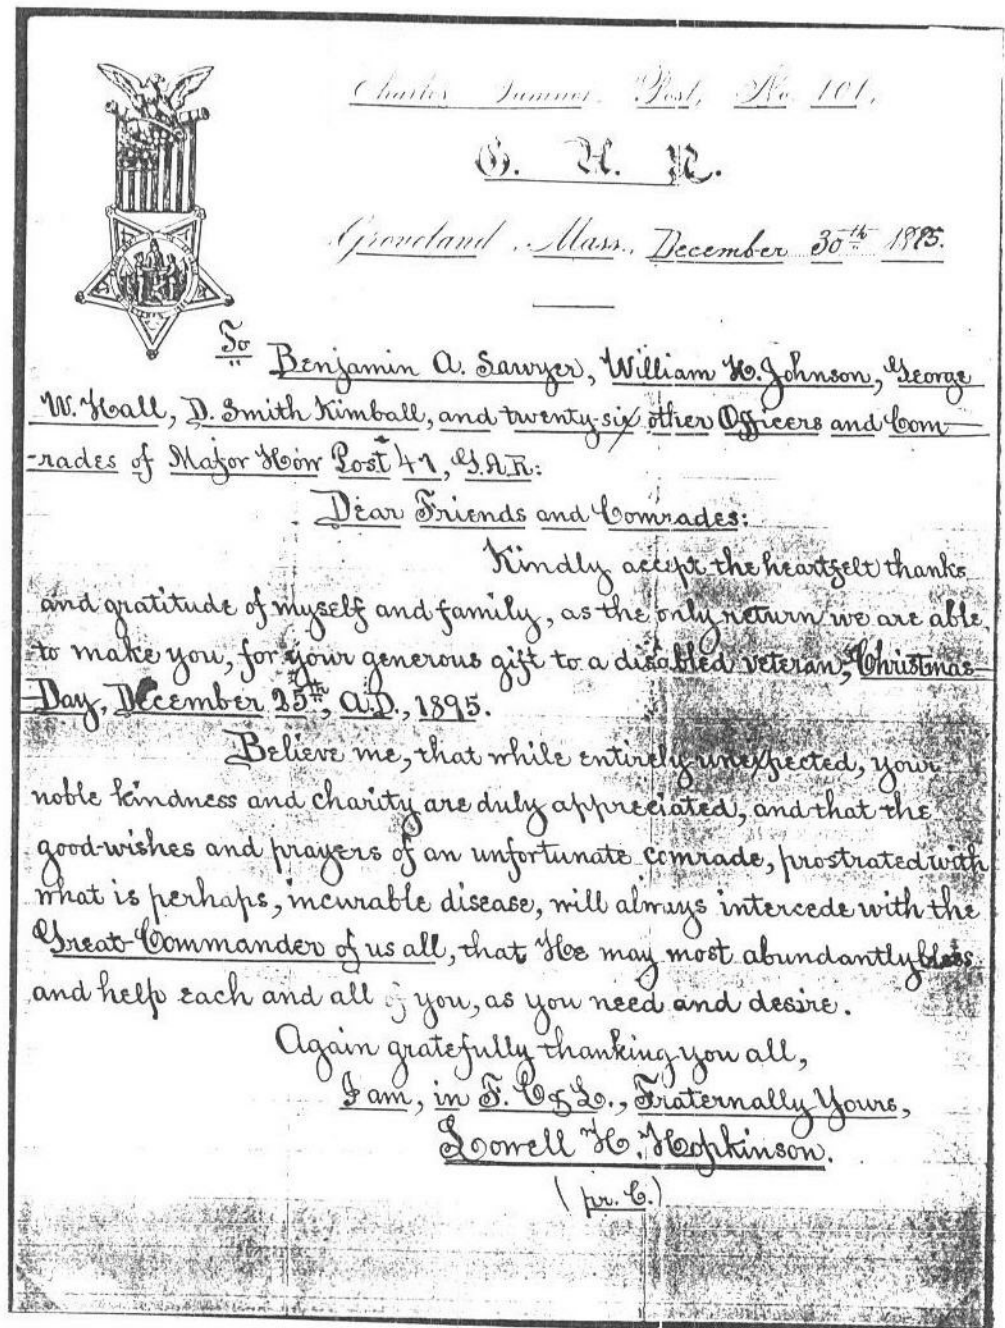 Charles Sumner Post, No. 101,
G. A. R.
Groveland, Mass., December 30th 1895.
To Benjamin A. Sawyer, William H. Johnson, George
W. Hall, D. Smith Kimball, and twenty-six other Officers and Com-
-rades of Major How Post 47, G.A.R:
Dear Friends and Comrades:
Kindly accept the heartfelt thanks
and gratitude of myself and family, as the only return we are able,
to make you, for your generous gift to a disabled veteran, Christmas
Day, December 25th, A.D., 1895.
Believe me, that while entirely unexpected, your
noble kindness and charity are duly appreciated, and that the
good-wishes and prayers of an unfortunate comrade, prostrated with
what is perhaps, incurable disease, will always intercede with the
Great Commander of us all, that He may most abundantly bless
and help each and all of you, as you need and desire.
Again gratefully thanking you all,
I am, in F. C & L., Fraternally Yours,
Lowell H. Hopkinson.
(pr. C.)